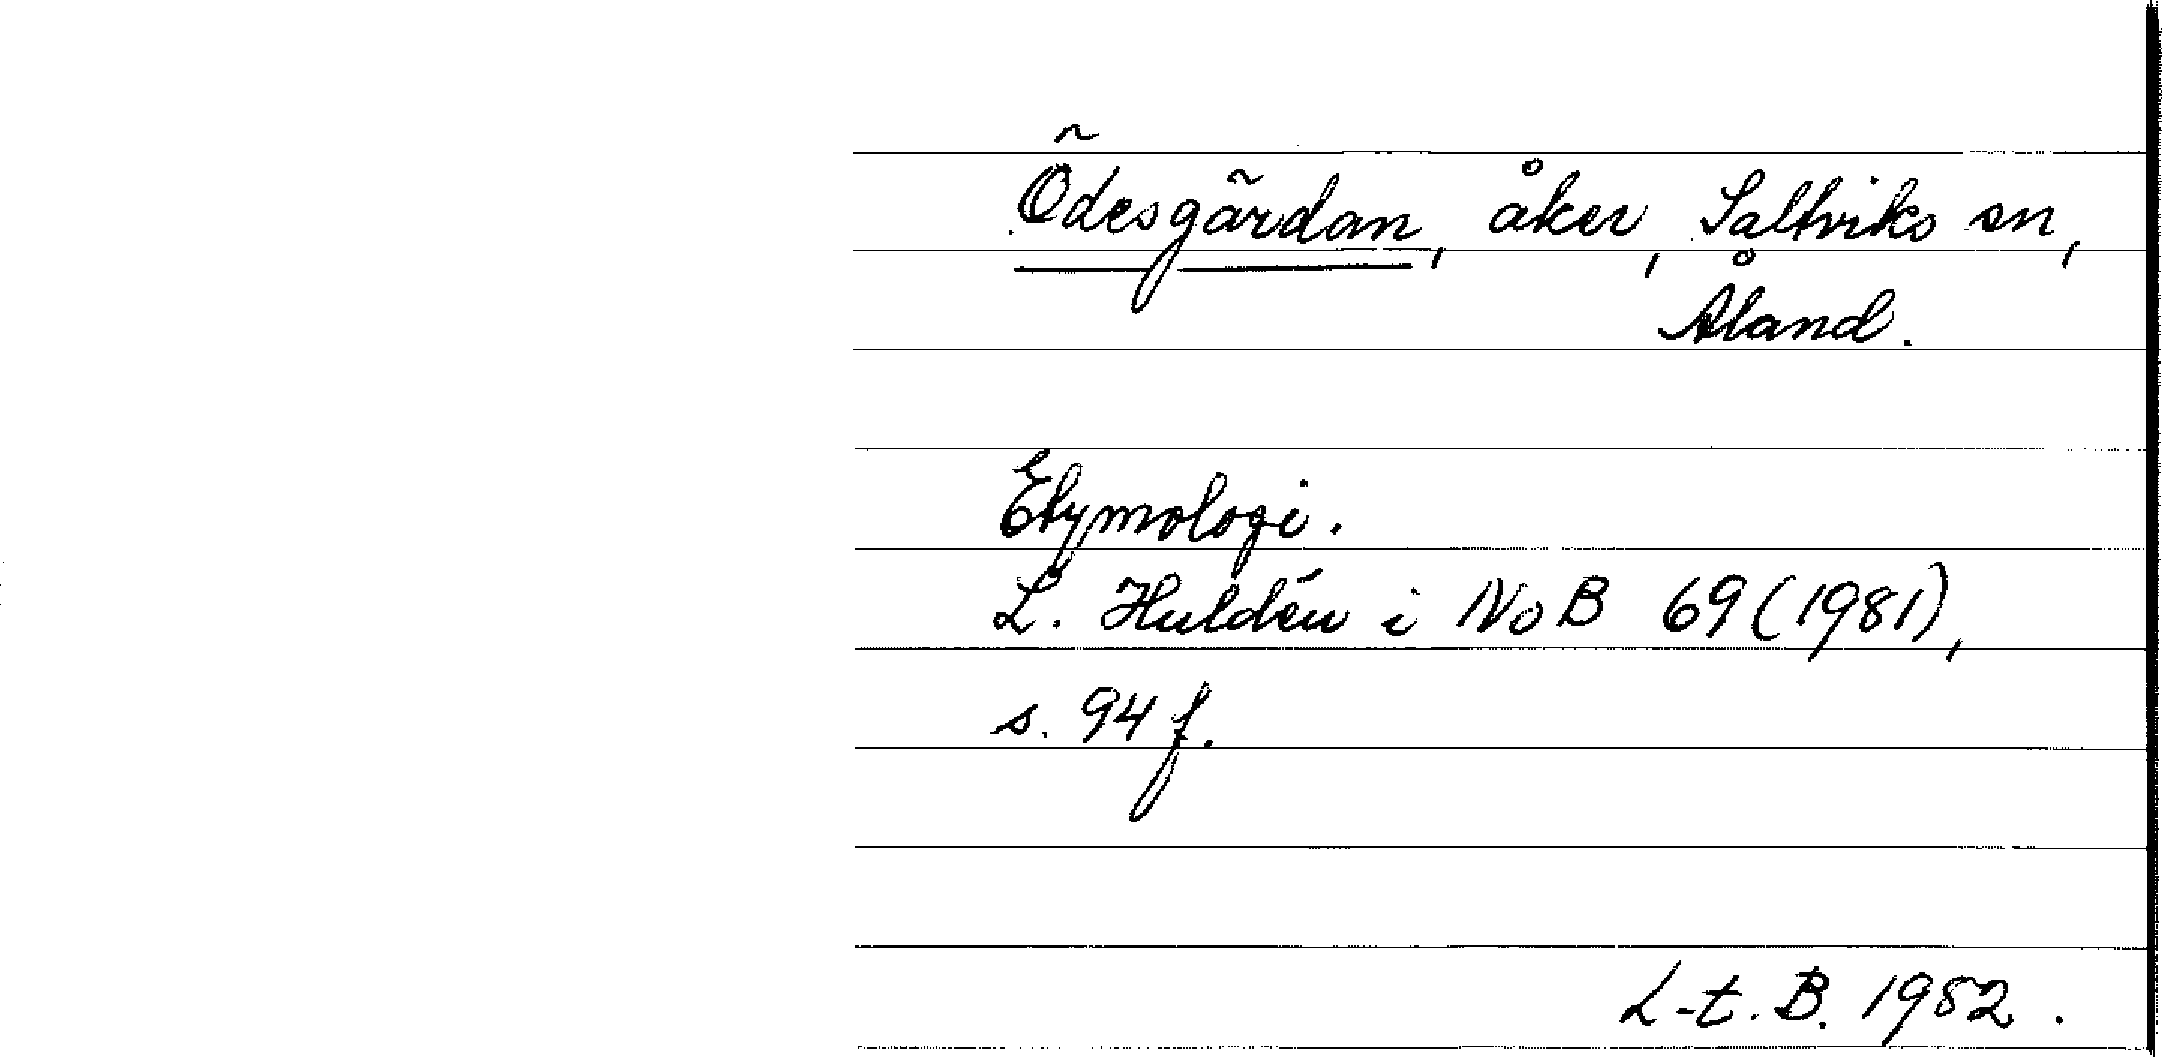 Ödesgärdan, åker, Saltviks sn,
Åland.
Etymologi.
L. Huldén i NoB 69 (1981),
s. 94 f.
L-t. B. 1982.